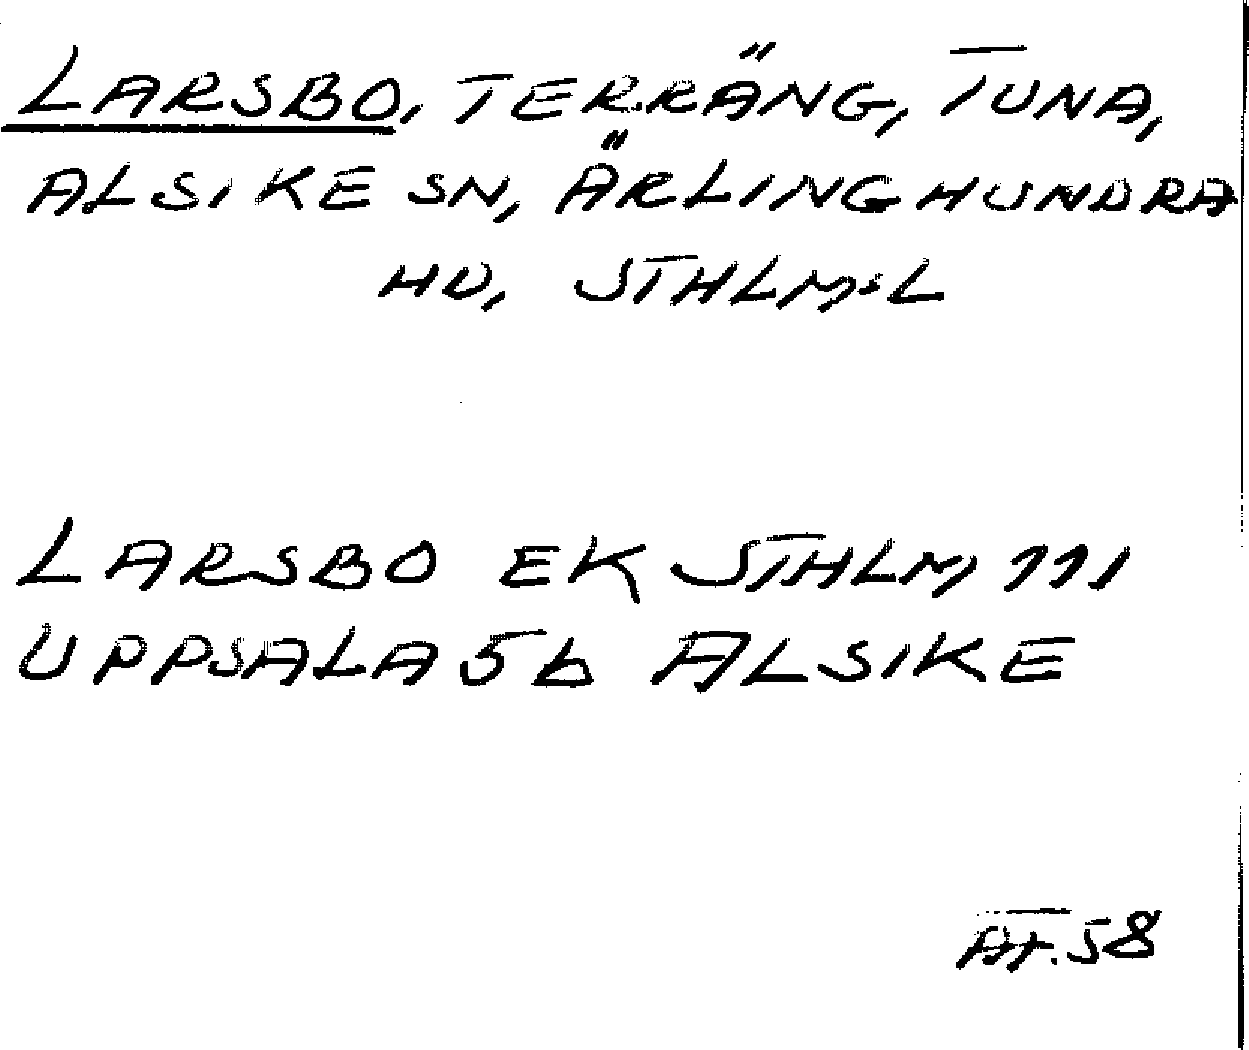 LARSBO, TERRÄNG, TUNA,
ALSIKE SN, ÄRLINGHUNDRA
HD, STHLMS L
LARSBO EK STHLM 111
UPPSALA 5b ALSIKE
AT.58